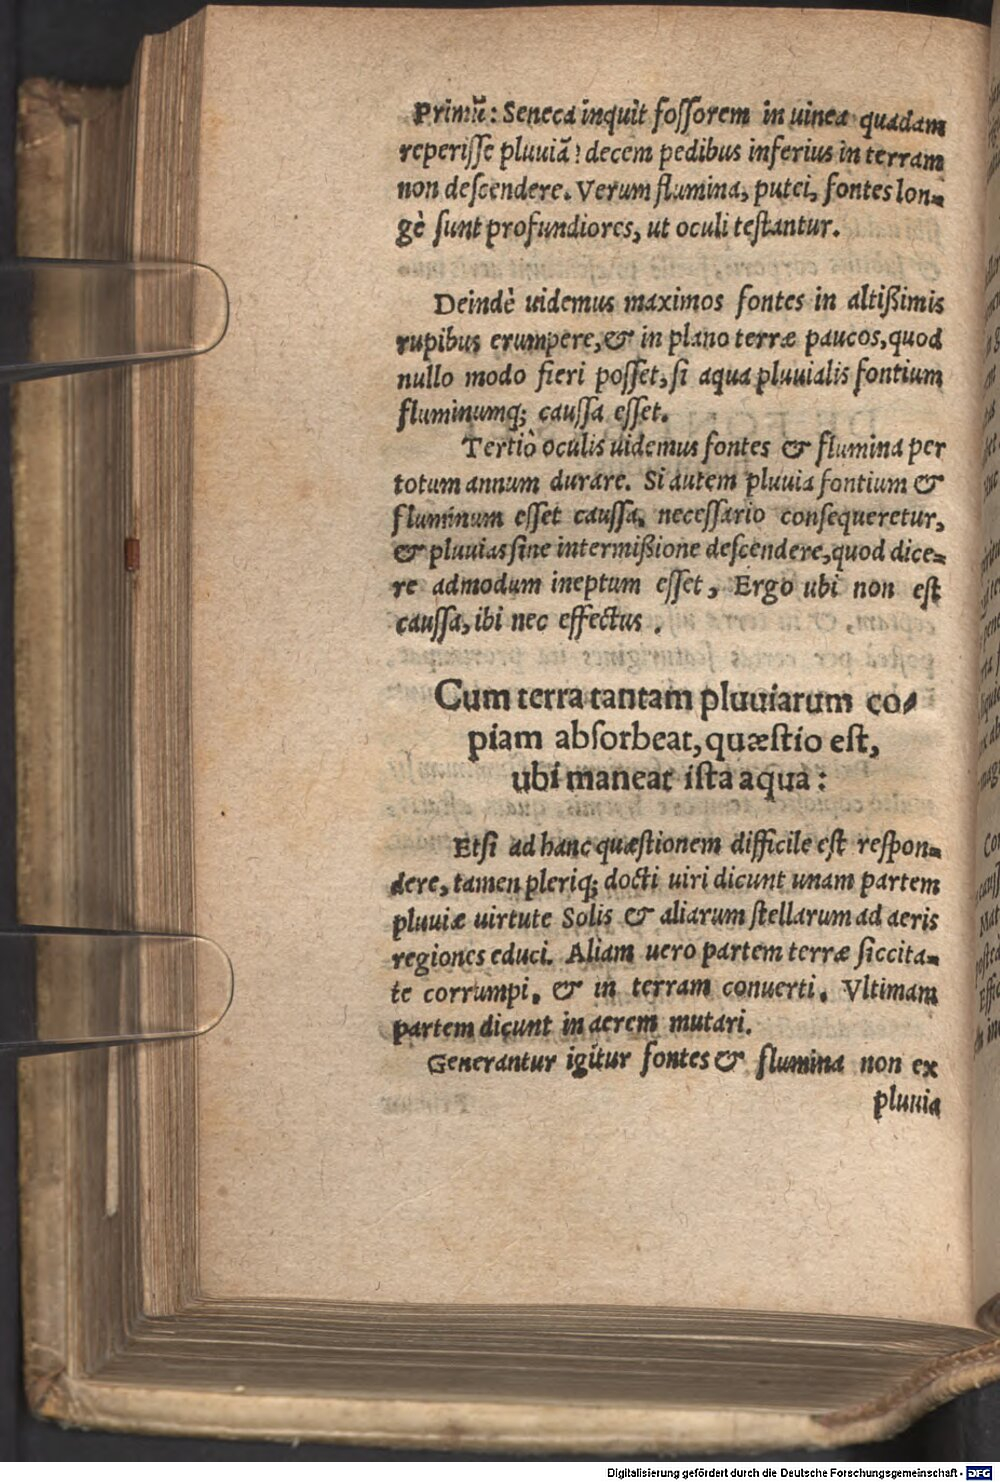 Primū: Seneca inquit fossorem in uinea quadam
reperisse pluuiā: decem pedibus inferius in terram
non descendere. Verum flumina, putei, fontes lon-
gè sunt profundiores, ut oculi testantur.
Deindè uidemus maximos fontes in altißimis
rupibus erumpere, & in plano terræ paucos, quod
nullo modo fieri posset, si aqua pluuialis fontium
fluminumq; caussa esset.
Tertiò oculis uidemus fontes & flumina per
totum annum durare. Si autem pluuia fontium &
fluminum esset caussa, necessario consequeretur,
& pluuias sine intermißione descendere, quod dice-
re admodum ineptum esset, Ergo ubi non est
caussa, ibi nec effectus.
Cum terra tantam pluuiarum co-
piam absorbeat, quæstio est,
ubi maneat ista aqua:
Etsi ad hanc quæstionem difficile est respon-
dere, tamen pleriq; docti uiri dicunt unam partem
pluuiæ uirtute Solis & aliarum stellarum ad aeris
regiones educi. Aliam uero partem terræ siccita-
te corrumpi, & in terram conuerti. Vltimam
partem dicunt in aerem mutari.
Generantur igitur fontes & flumina non ex
pluuia
Digitalisierung gefördert durch die Deutsche Forschungsgemeinschaft - DFG